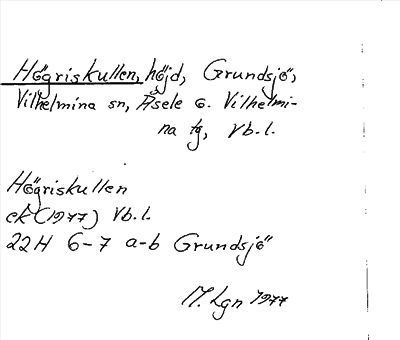 Högriskullen, höjd, Grundsjö,
Vilhelmina sn, Åsele o. Vilhelmi-
na tg, Vb.l.
Högriskullen
ek (1977) Vb.l.
22H 6-7 a-b Grundsjö
M. Lgn 1977